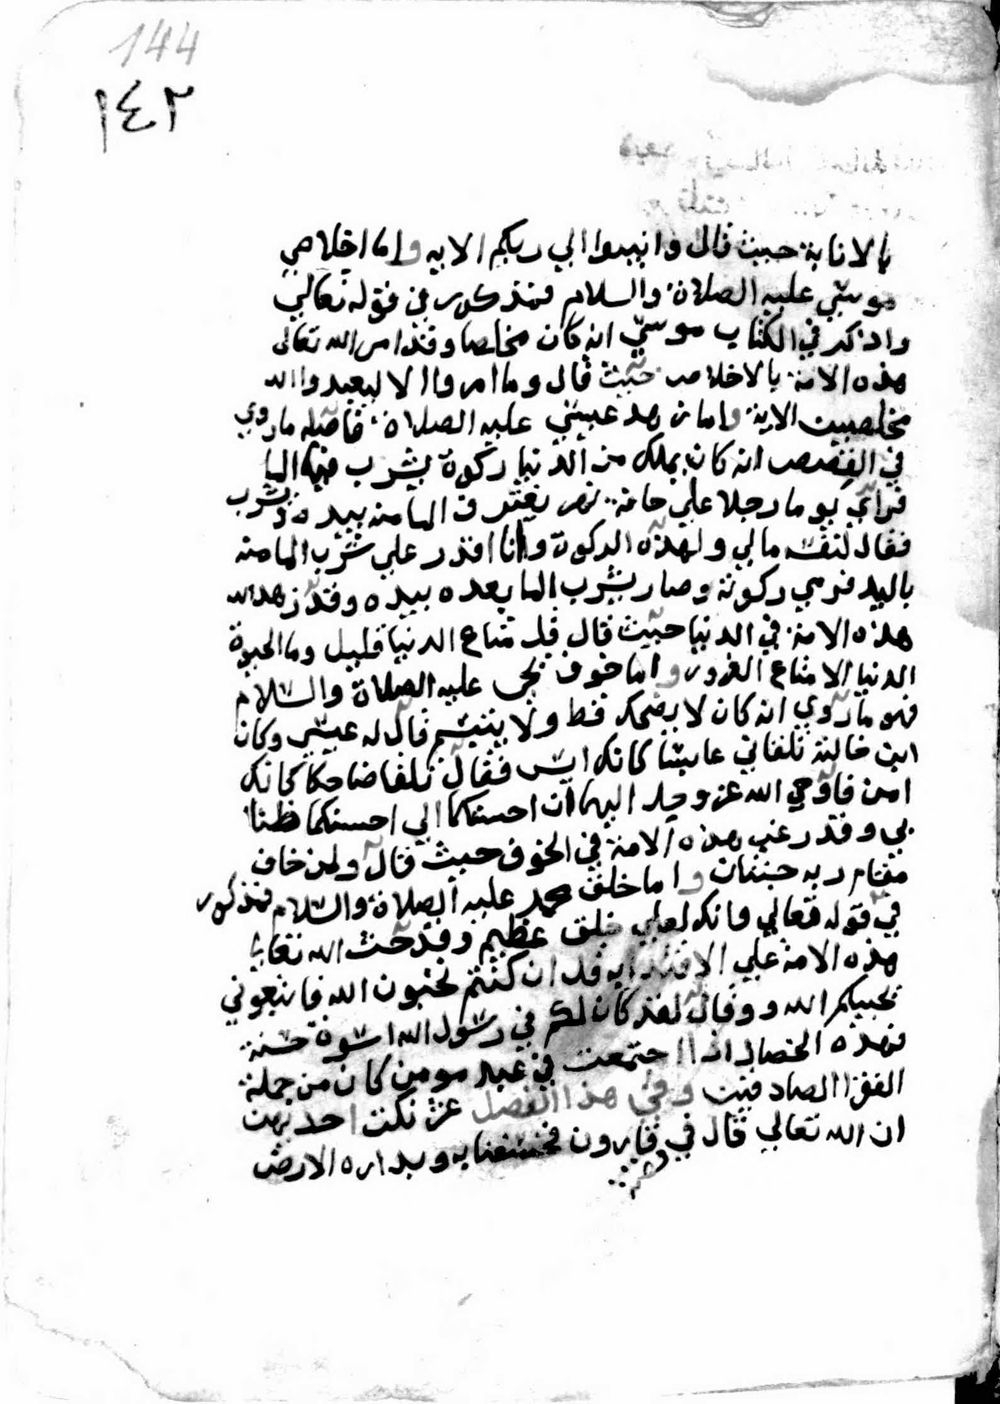 144
١٤٢
بالانابة حيث قال وانيبوا الي ربكم الايه واما اخلاص
موسي عليه الصلاة والسلام فمذكور في قوله تعالي
واذكر في الكتاب موسي انه كان مخلصا وقد امر الله تعالى
هذه الامة بالاخلاص حيث قال وما امروا الا ليعبدوا الله
مخلصين الاية واما زهد عيسي عليه الصلاة فاصله ما روي
في القصص انه كان يملك من الدنيا ركوة يشرب فيها الما
فراي يوما رجلا علي حافة نهر يغترف الما منه بيده ويشرب
فقال لنفسه مالي ولهذه الركوة وانا اقدر علي شرب الما منه
باليد فرمي ركوته وصار يشرب الما بعده بيده وقد زهد الله
هذه الامة في الدنيا حيث قال قل متاع الدنيا قليل وما الحيوة
الدنيا الا متاع الغرور واما خوف يحى عليه الصلاة والسلام
فهو ما روي انه كان لا يضحك قط ولا يتبسم فقال له عيسي وكانا
ابن خالته تلقاني عابسا كانك ايس فقال تلقا ضاحكا كانك
امن فاوحي الله عز وجل اليهما ان احسنكما الي احسنكما ظنا
بي وقد رغب هذه الامة في الخوف حيث قال ولمن خاف
مقام ربه جنتان واما خلق محمد عليه الصلاة والسلام فمذكور
في قوله تعالي وانك لعلي خلق عظيم وقد حث الله تعالي
هذه الامة علي الاقتدا به قل ان كنتم تحبون الله فاتبعوني
يحببكم الله ووقال لقد كان لكم في رسول الله اسوة حسنة
فهذه الخصال اذا اجتمعت في عبد مومن كان من جملة
الفقرا الصادقين وفي هذا الفصل عز نكت احدهن
ان الله تعالي قال في قارون فخسفنا به وبداره الارض